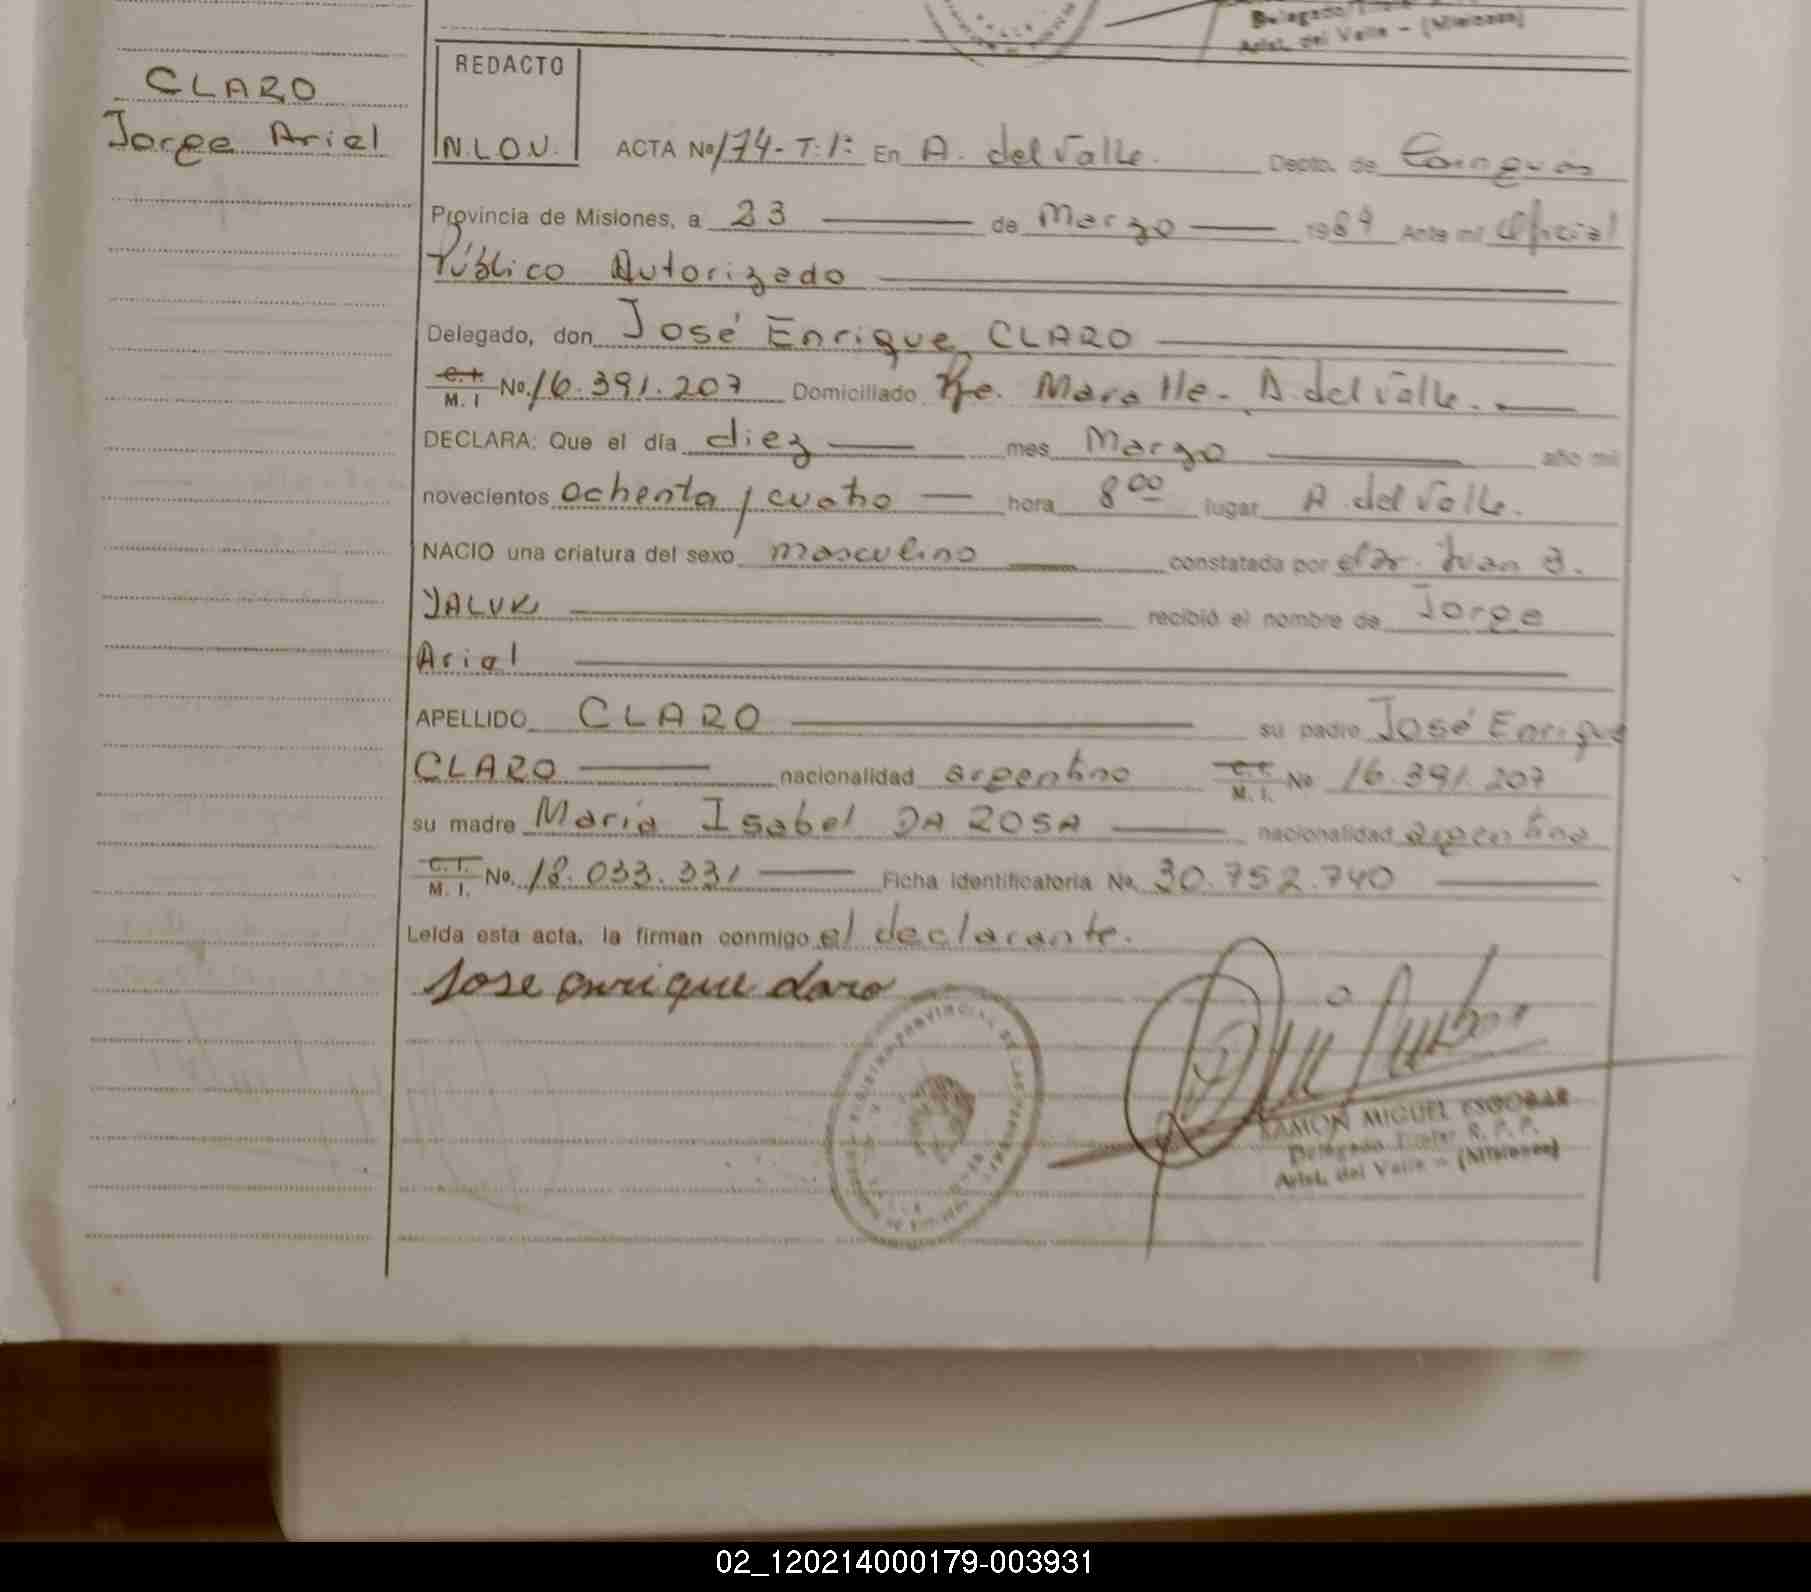 Delegado Titular
Arist. del Valle - (Misiones)
CLARO
Jorge Ariel
REDACTO
N.L.O.V.
ACTA No 174- T: 1º En A. del Valle. Depto. de Cainguás
Provincia de Misiones, a 23 de Marzo 1984 Ante mi Oficial
Público Autorizado
Delegado, don José Enrique CLARO
C.I. M. I No. 16.391.207 Domiciliado A. del Valle.
DECLARA: Que el día diez mes Marzo año mil
novecientos ochenta y cuatro hora 8 00 lugar A. del Valle.
NACIO una criatura del sexo masculino constatada por el Dr. Juan B.
YALUK recibió el nombre de Jorge
Ariel
APELLIDO CLARO su padre José Enrique
CLARO nacionalidad argentino C.I. M. I. No 16.391.207
su madre Maria Isabel DA ROSA nacionalidad argentina
C.I. M. I. No. 18.033.331 Ficha Identificatoria No. 30.752.740
Leída esta acta, la firman conmigo el declarante.
Jose enrique claro
RAMON MIGUEL ESCOBAR
Delegado Titular R. P. P.
Arist. del Valle - (Misiones)
02_120214000179-003931